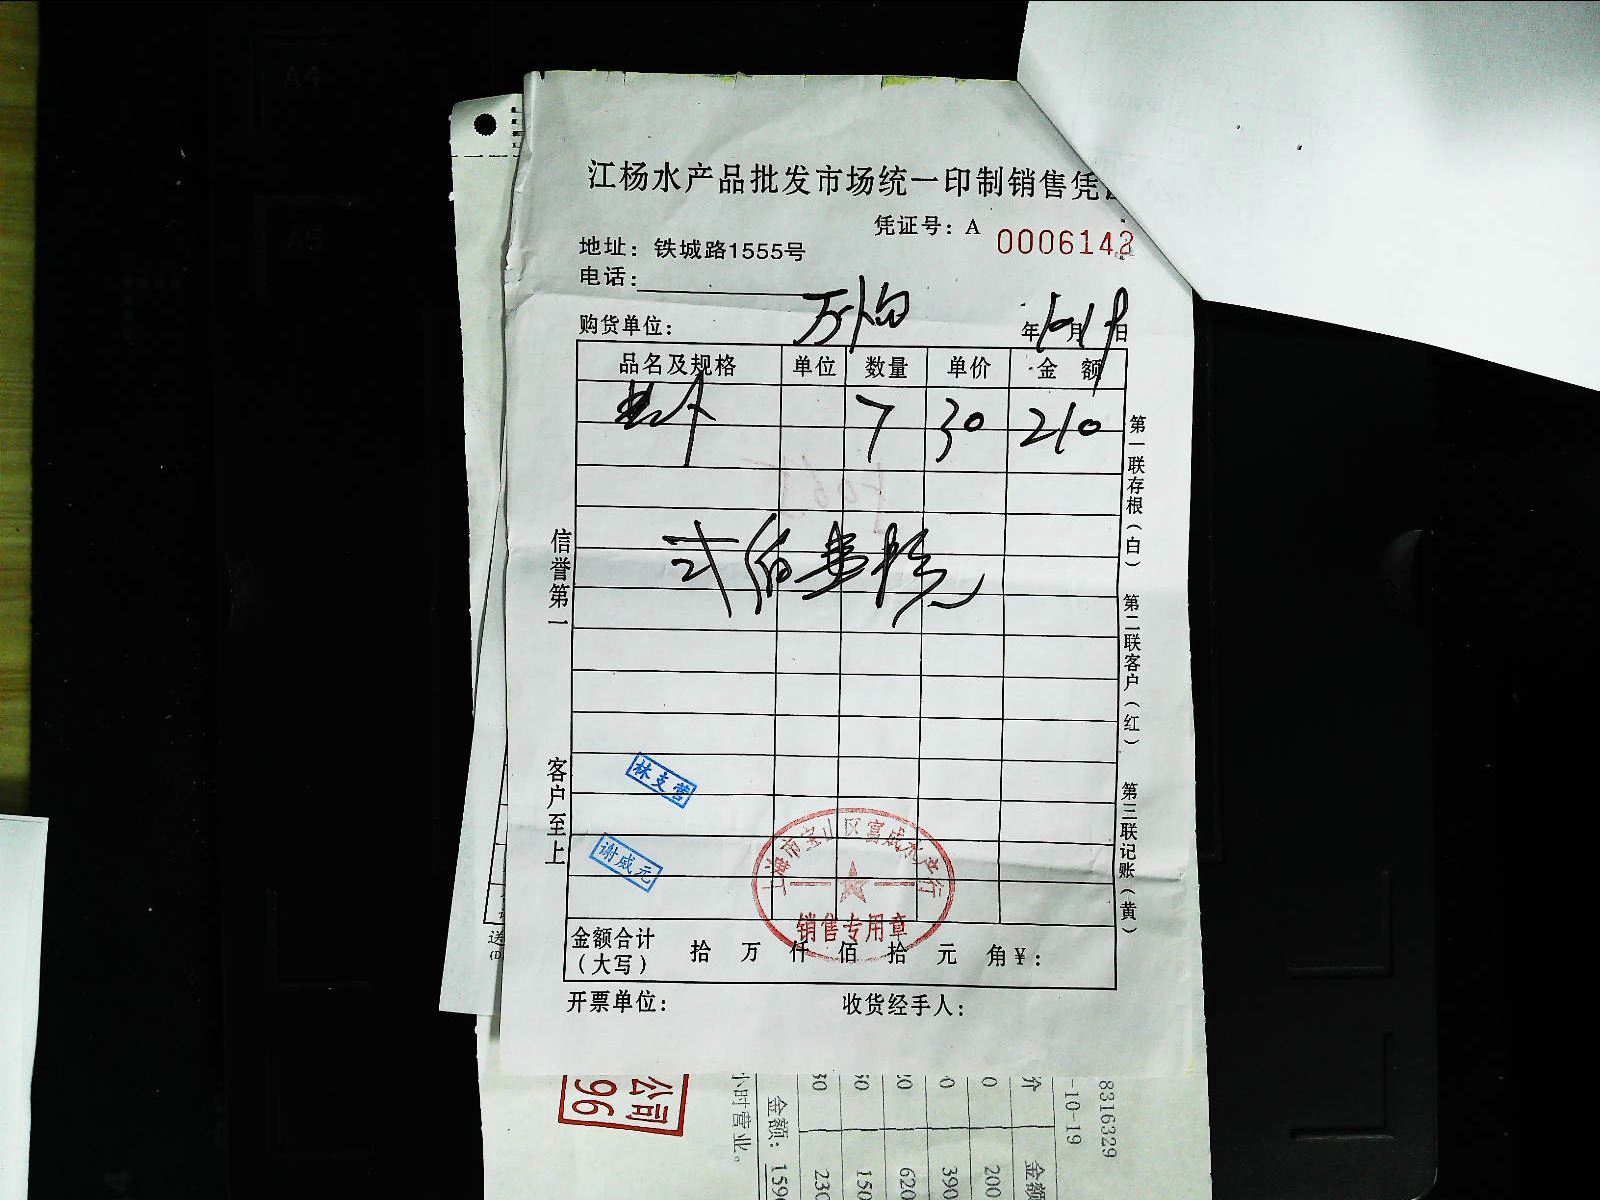 A4
A5
江杨水产品批发市场统一印制销售凭
凭证号：A 0006142
地址：铁城路1555号
电话：
购货单位： 年10月19日
品名及规格 单位 数量 单价 金 额
7 30 210
弍佰壹拾元
信誉第一
客户至上
第一联存根（白） 第二联客户（红） 第三联记账（黄）
林支营
谢威元
上海市宝山区富成水产行
销售专用章
金额合计（大写） 拾 万 仟 佰 拾 元 角￥：
开票单位： 收货经手人：
公司
96
小时营业。
金额：
8316329
-10-19
价
金额
200
390
620
150
230